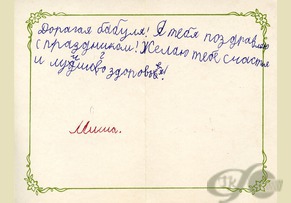 Дорогая бабуля! Я тебя поздравляю
с праздником! Желаю тебе счастья
и лучшего здоровья!
Миша.